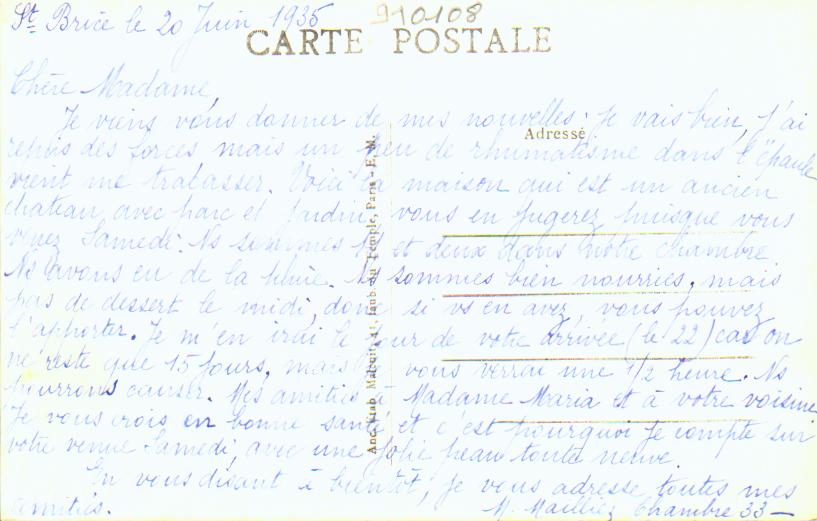 St Brice le 20 Juin 1935
910108
CARTE POSTALE
Chère Madame,
Je viens vous donner de mes nouvelles; je vais bien, j'ai
Adresse
repris des forces mais un peu de rhumatisme dans l'épaule
vient me tracasser. Voici la maison qui est un ancien
chateau avec parc et jardin, vous en jugerez puisque vous
venez Samedi. Ns sommes et deux dans notre chambre
Ns avons eu de la pluie. Ns sommes bien nourries, mais
pas de dessert le midi, donc si vs en avez, vous pouvez
l'apporter. Je m'en irai le jour de votre arrivée (le 22) car on
ne reste que 15 jours, mais je vous verrai une 1/2 heure. Ns
pourrons causer. Mes amitiés à Madame Maria et à votre voisine.
Je vous crois en bonne santé et c'est pourquoi je compte sur
votre venue Samedi; avec une jolie peau toute neuve.
En vous disant à bientôt, je vous adresse toutes mes
amitiés.
M. Mailliez Chambre 33 —
Anc. Etab. Malcuit, 41, faub. du Temple, Paris - E. M.